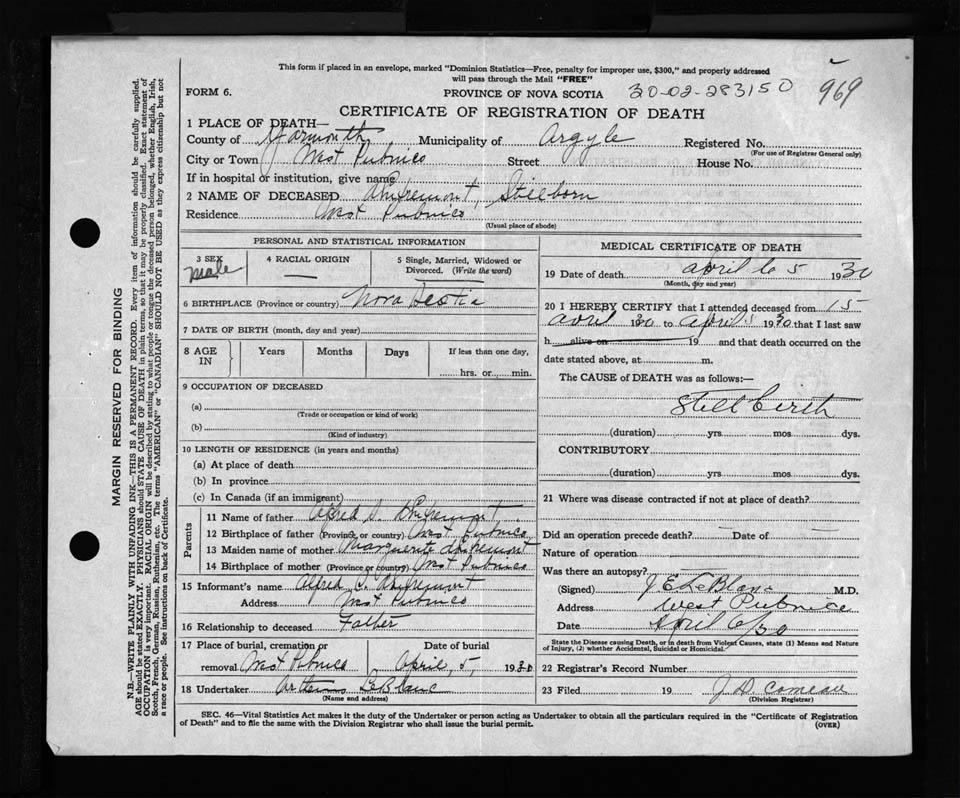 This form if placed in an envelope, marked "Dominion Statistics—Free, penalty for improper use, $300," and properly addressed
will pass through the Mail "FREE"
FORM 6.
PROVINCE OF NOVA SCOTIA
30-02-283150
969
CERTIFICATE OF REGISTRATION OF DEATH
1 PLACE OF DEATH—
County of Yarmouth Municipality of Argyle Registered No.
(For use of Registrar General only)
City or Town West Pubnico Street House No.
If in hospital or institution, give name
2 NAME OF DECEASED Stillborn
Residence West Pubnico
(Usual place of abode)
PERSONAL AND STATISTICAL INFORMATION
3 SEX
male
4 RACIAL ORIGIN
—
5 Single, Married, Widowed or
Divorced. (Write the word)
6 BIRTHPLACE (Province or country) Nova Scotia
7 DATE OF BIRTH (month, day and year)
8 AGE
IN
Years
Months
Days
If less than one day,
hrs. or min.
9 OCCUPATION OF DECEASED
(a)
(Trade or occupation or kind of work)
(b)
(Kind of industry)
10 LENGTH OF RESIDENCE (in years and months)
(a) At place of death
(b) In province
(c) In Canada (if an immigrant)
Parents
11 Name of father Alfred
12 Birthplace of father (Province or country) West Pubnico
13 Maiden name of mother Marguerite
14 Birthplace of mother (Province or country) West Pubnico
15 Informant's name Alfred
Address West Pubnico
16 Relationship to deceased Father
17 Place of burial, cremation or
removal West Pubnico
Date of burial
April, 5, 1930
18 Undertaker LeBlanc
(Name and address)
MEDICAL CERTIFICATE OF DEATH
19 Date of death april 5 1930
(Month, day and year)
20 I HEREBY CERTIFY that I attended deceased from
april 30 to april 1930 that I last saw
h alive on 19 and that death occurred on the
date stated above, at m.
The CAUSE of DEATH was as follows:—
Still birth
(duration) yrs. mos dys.
CONTRIBUTORY
(duration) yrs. mos dys.
21 Where was disease contracted if not at place of death?
Did an operation precede death? Date of
Nature of operation
Was there an autopsy?
(Signed) J E LeBlanc M.D.
Address West Pubnico
Date April 6/30
State the Disease causing Death, or in death from Violent Causes, state (1) Means and Nature
of Injury, (2) whether Accidental, Suicidal or Homicidal.
22 Registrar's Record Number
23 Filed 19 Comeau
(Division Registrar)
SEC. 46—Vital Statistics Act makes it the duty of the Undertaker or person acting as Undertaker to obtain all the particulars required in the "Certificate of Registration
of Death" and to file the same with the Division Registrar who shall issue the burial permit.
(OVER)
MARGIN RESERVED FOR BINDING
N.B.—WRITE PLAINLY WITH UNFADING INK—THIS IS A PERMANENT RECORD. Every item of information should be carefully supplied.
AGE should be stated EXACTLY. PHYSICIANS should STATE CAUSE OF DEATH in plain terms, so that it may be properly classified. Exact statement of
OCCUPATION is very important. RACIAL ORIGIN will be described by stating to what people or tongue the deceased person belonged, whether English, Irish,
Scotch, French, German, Russian, Ruthenian, etc. The terms "AMERICAN" or "CANADIAN" SHOULD NOT BE USED as they express citizenship but not
a race or people. See instructions on back of Certificate.